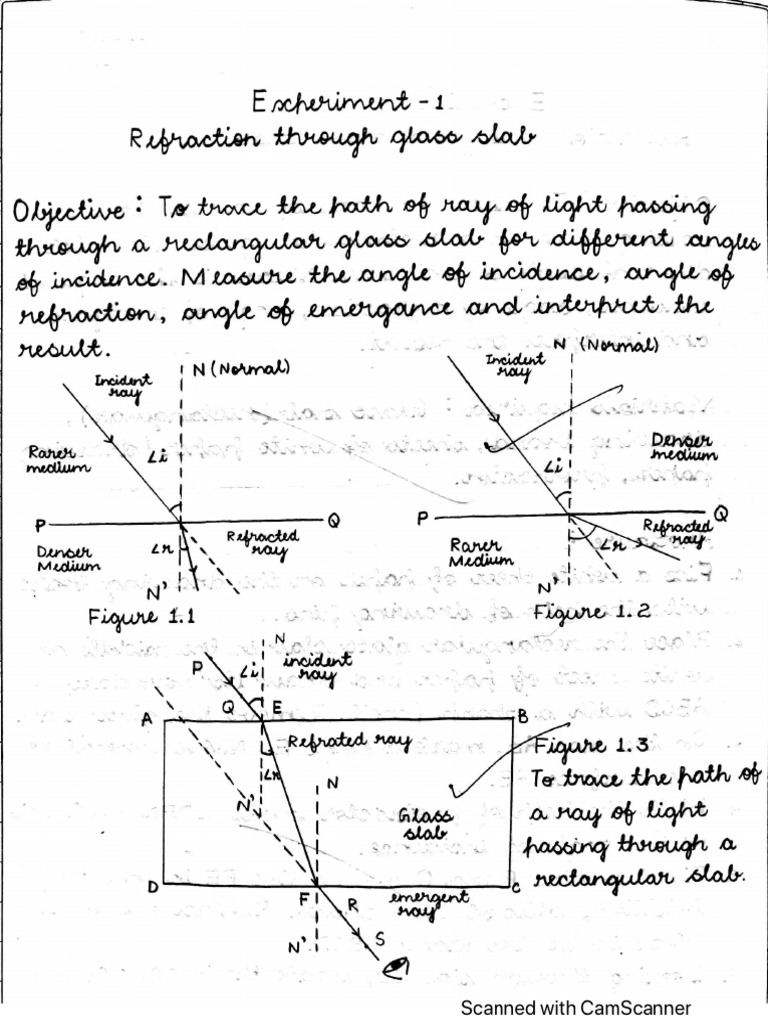 Experiment - 1
Refraction through glass slab
Objective : To trace the path of ray of light passing
through a rectangular glass slab for different angles
of incidence. Measure the angle of incidence, angle of
refraction, angle of emergance and interpret the
result.
N (Normal)
Incident
ray
Rarer
medium
∠i
P
Q
Denser
Medium
∠r
Refracted
ray
N'
Figure 1.1
N (Normal)
Incident
ray
Denser
medium
∠i
P
Q
Rarer
Medium
∠r
Refracted
ray
N'
Figure 1.2
N
P
∠i
incident
ray
Q
E
A
B
Refrated ray
∠r
N'
N
Glass
slab
D
C
F
R
emergent
ray
N'
S
Figure 1.3
To trace the path of
a ray of light
passing through a
rectangular slab.
Scanned with CamScanner